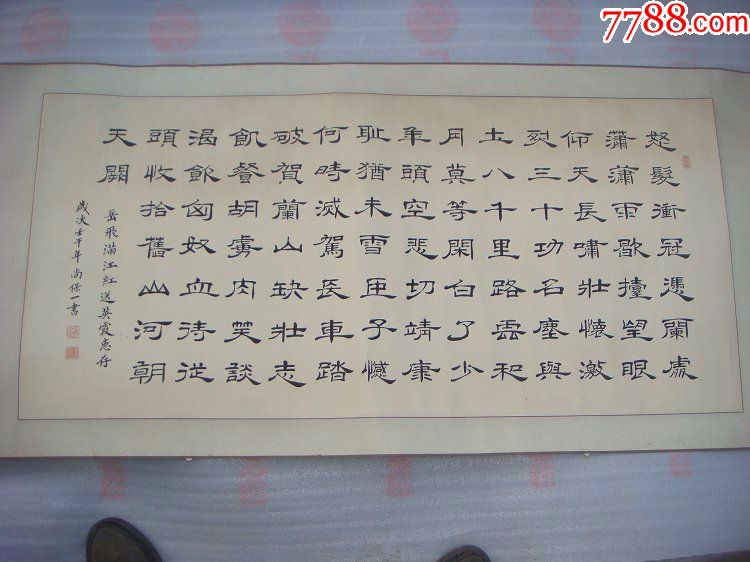 7788.com
怒髮衝冠憑闌處
瀟瀟雨歇擡望眼
仰天長嘯壯懷激
烈三十功名塵與
土八千里路雲和
月莫等閑白了少
年頭空悲切靖康
耻猶未雪臣子憾
何時滅駕長車踏
破賀蘭山缺壯志
飢餐胡虜肉笑談
渴飲匈奴血待從
頭收拾舊山河朝
天闕
岳飛滿江紅送英霞惠存
歲次壬午年尚保一書